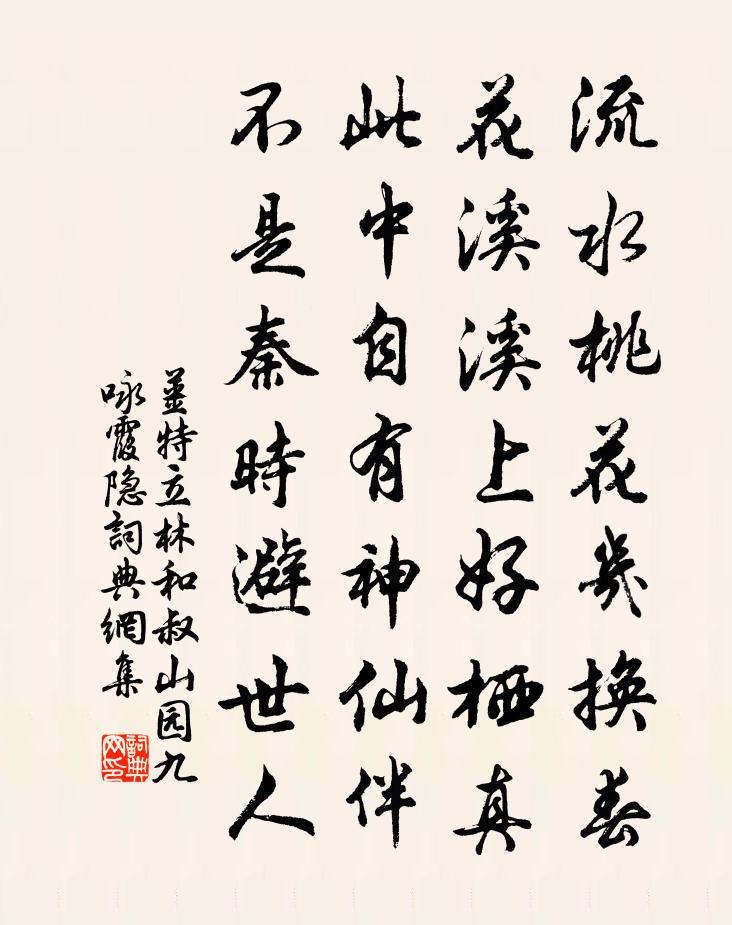 流水桃花幾換春
花溪溪上好栖真
此中自有神仙伴
不是秦時避世人
姜特立林和叔山园九
咏霞隐詞典網集
詞典
网印